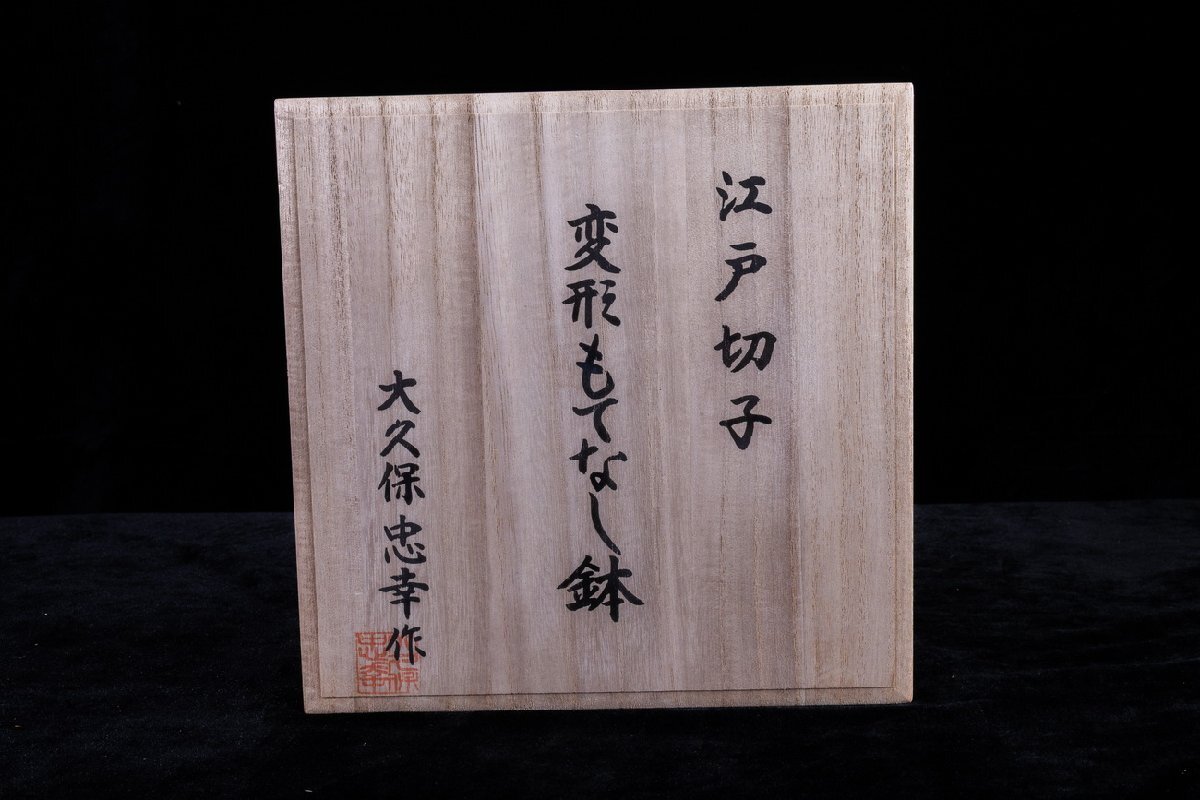 江戸切子
変形もてなし鉢
大久保忠幸作